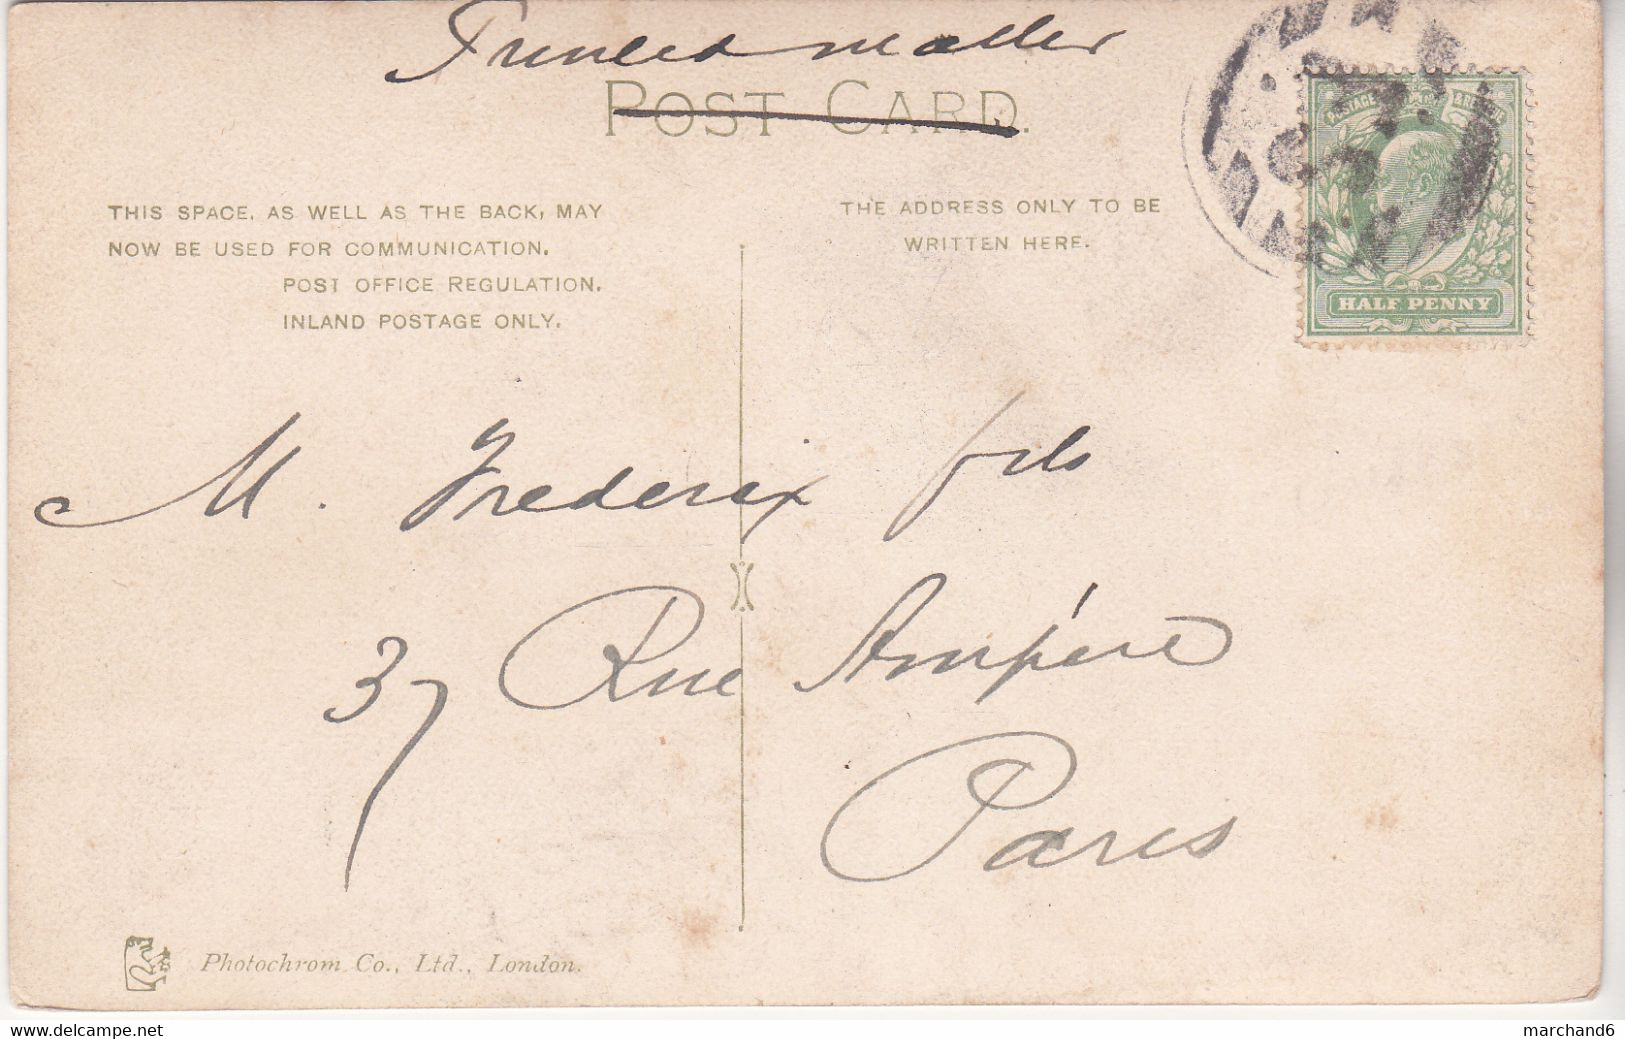 Printed matter
POST CARD.
THIS SPACE, AS WELL AS THE BACK, MAY
NOW BE USED FOR COMMUNICATION.
POST OFFICE REGULATION.
INLAND POSTAGE ONLY.
THE ADDRESS ONLY TO BE
WRITTEN HERE.
POSTAGE
HALF PENNY
M. Frederix fils
37 Rue Ampère
Paris
Photochrom Co., Ltd., London.
marchand6